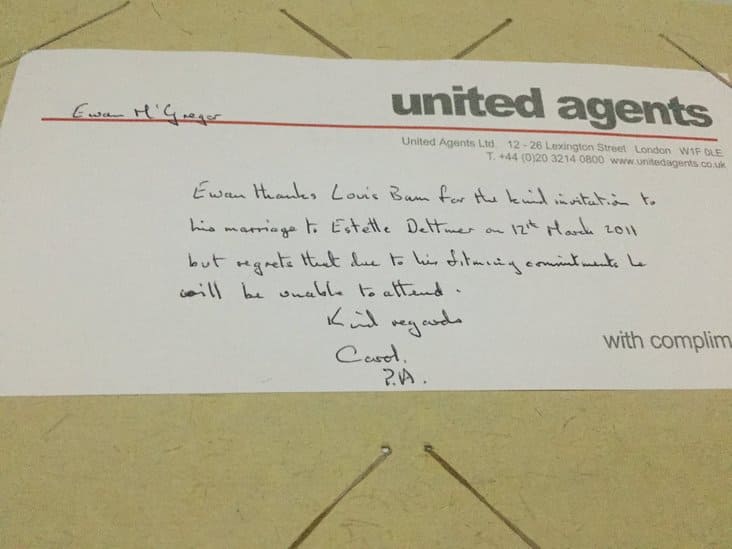 united agents
Ewan McGregor
United Agents Ltd. 12 - 26 Lexington Street London W1F 0LE
T. +44 (0)20 3214 0800 www.unitedagents.co.uk
Ewan thanks Louis Bam for the kind invitation to
his marriage to Estelle Dettmer on 12th March 2011
but regrets that due to his filming commitments he
will be unable to attend.
Kind regards
Carol.
P.A.
with complim